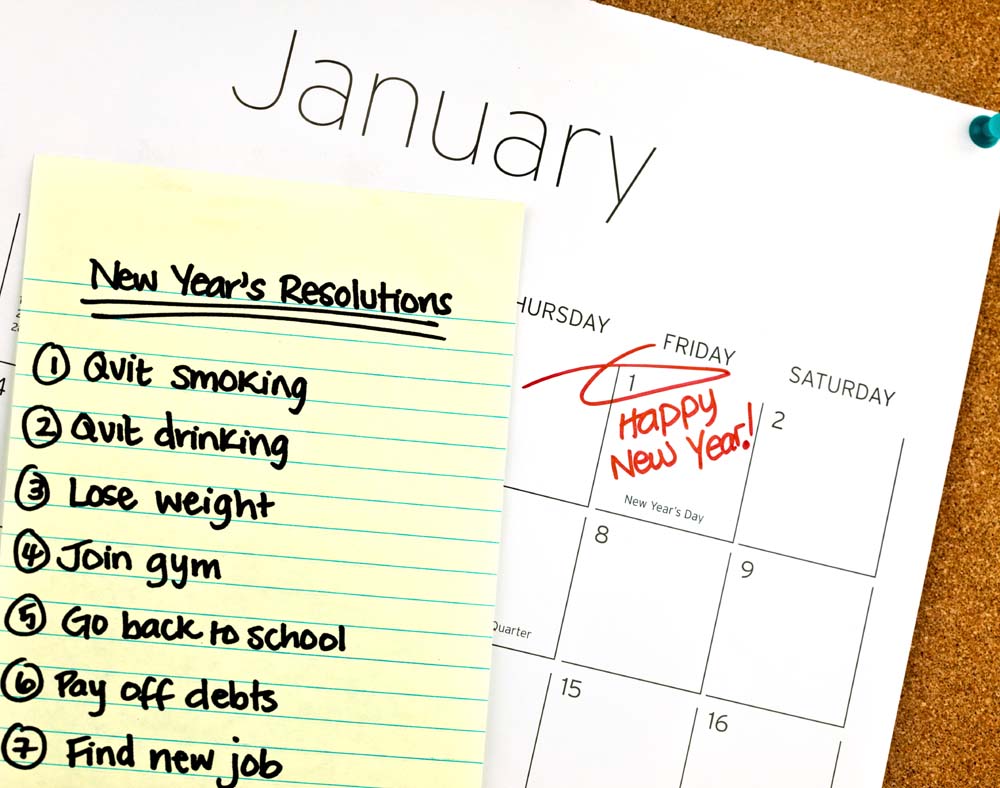 January
New Year's Resolutions
① Quit smoking
② Quit drinking
③ Lose weight
④ Join gym
⑤ Go back to school
⑥ Pay off debts
⑦ Find new job
FRIDAY
SATURDAY
1
Happy
New Year!
New Year's Day
2
8
9
Quarter
15
16